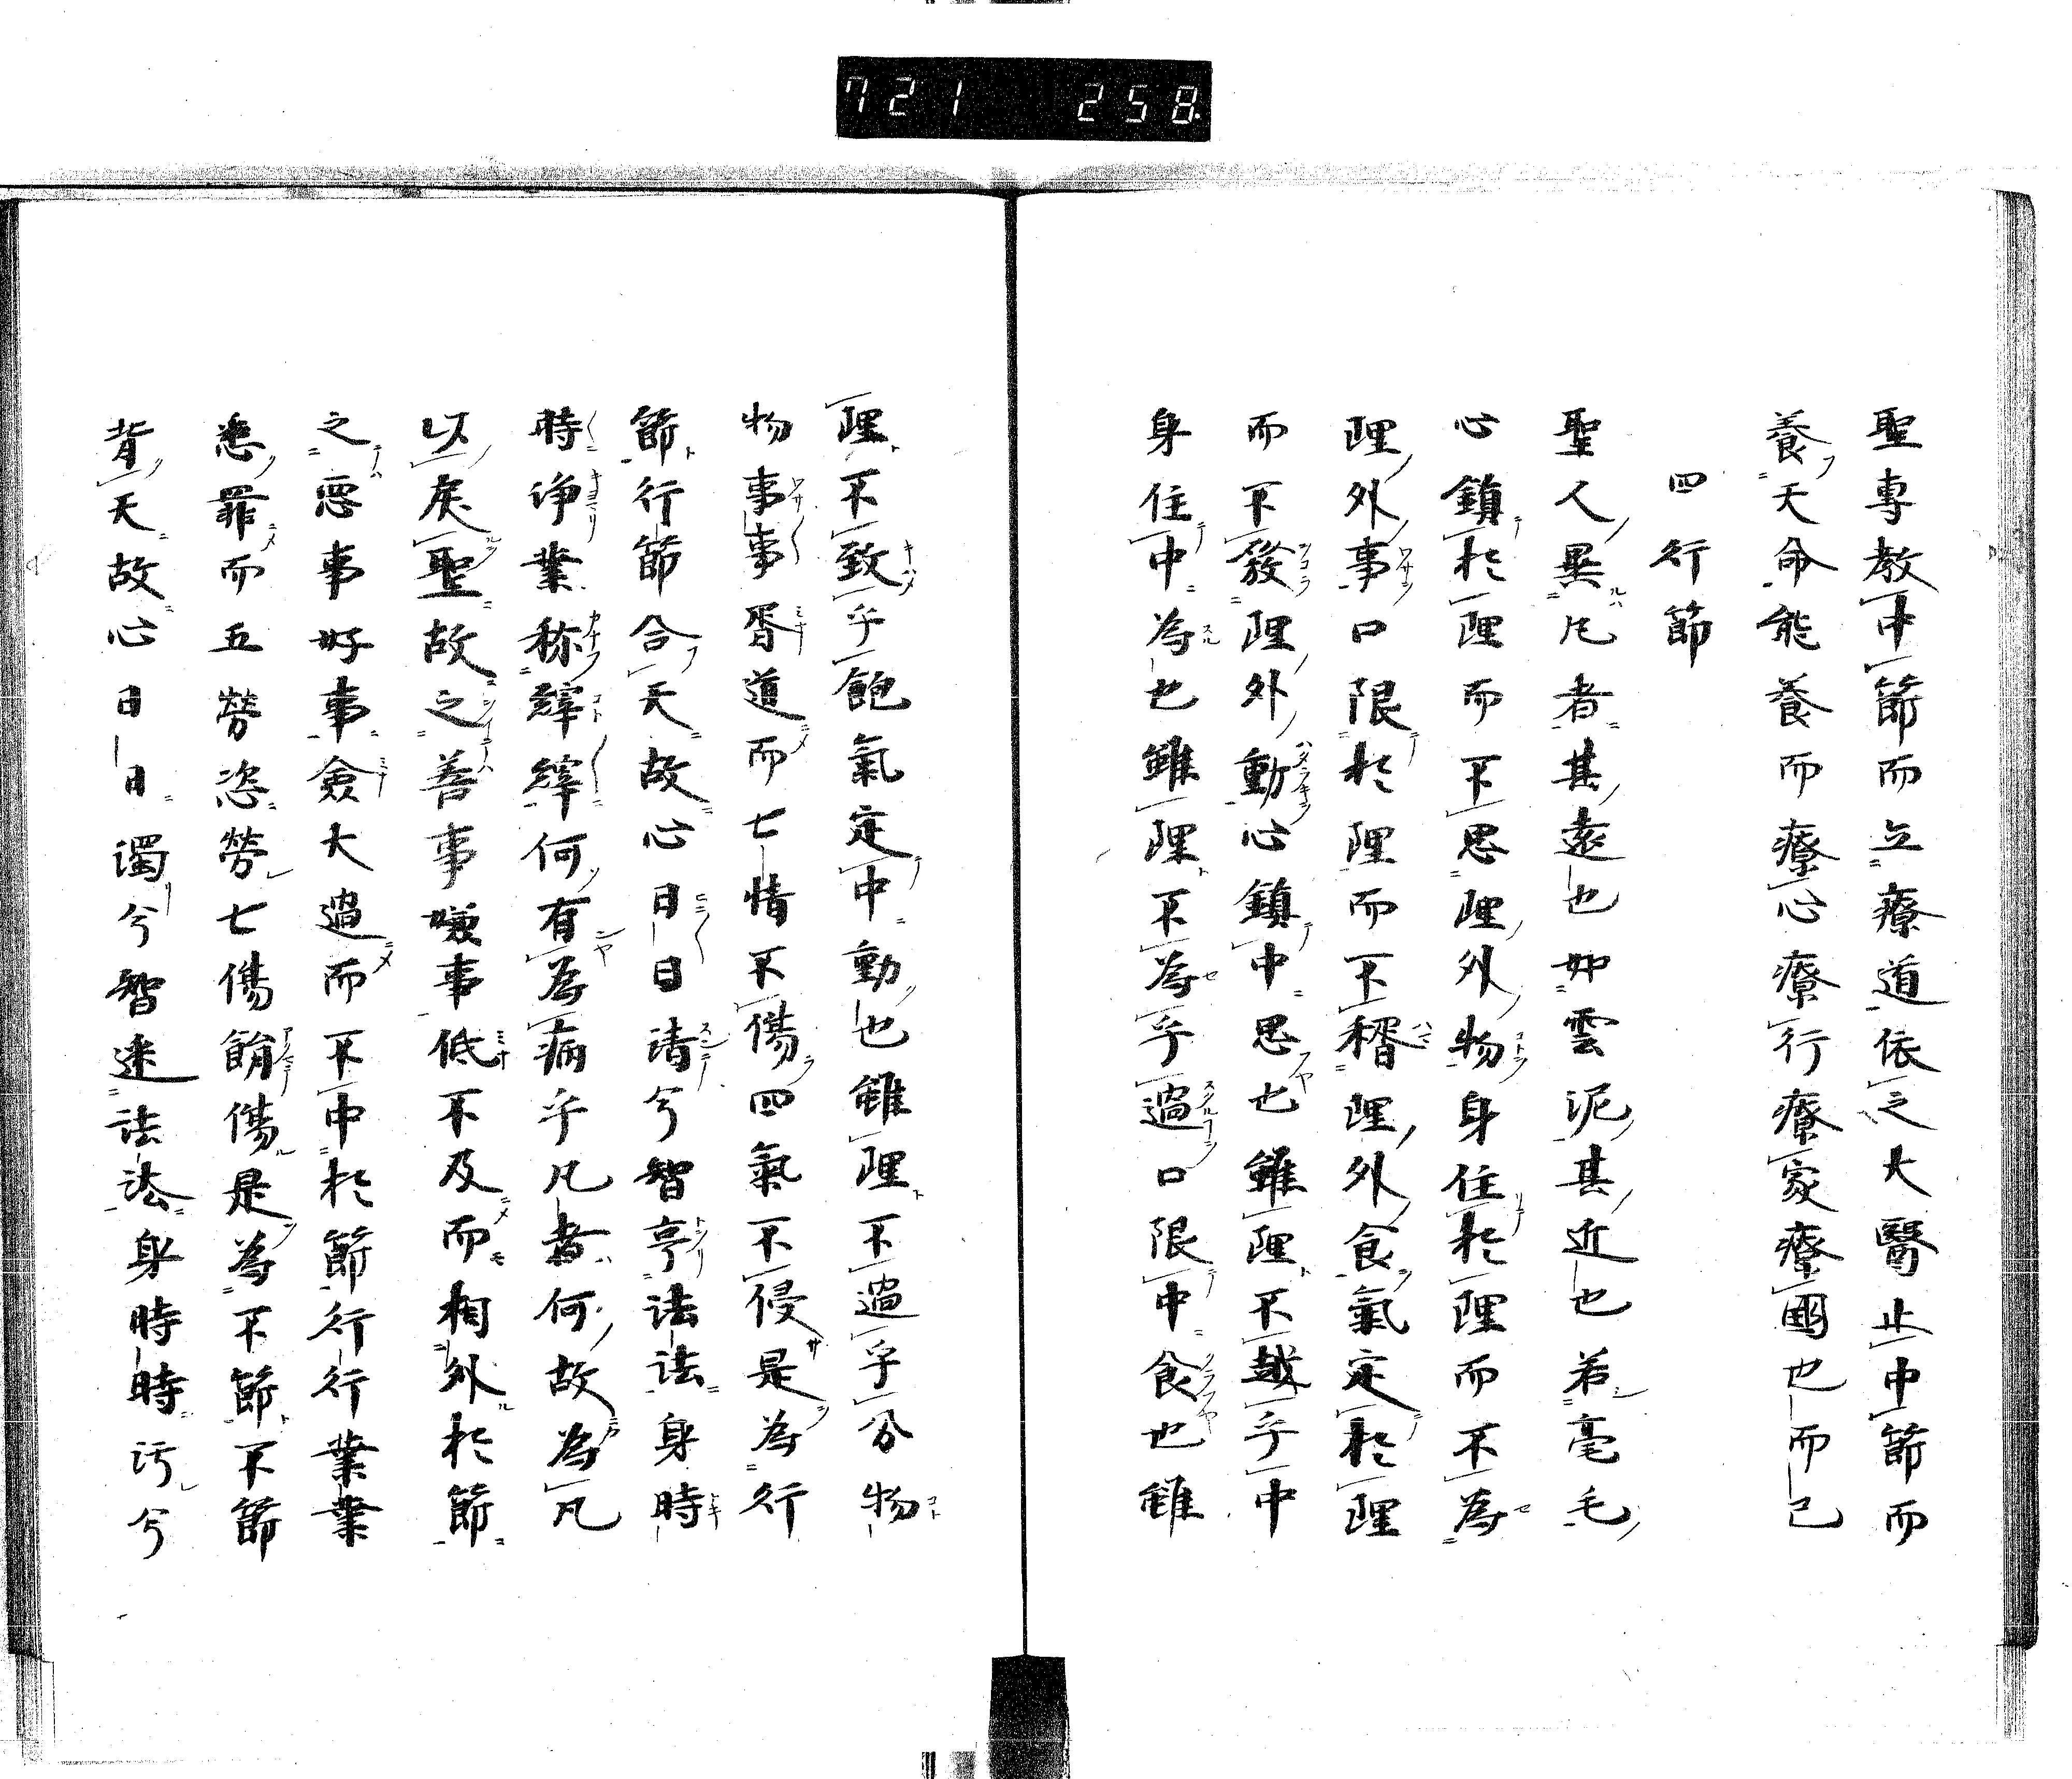 721 258
聖専教中節而立療道依之大醫止中節而
養天命能養而療心療行療家療國也而已
四行節
聖人異凡者甚遠也如雲泥甚近也若毫毛
心鎮於理而不思理外物身住於理而不為
理外事口限於理而不稽理外食氣定於理
而不發理外動心鎮中思也雖理不越乎中
身住中為也雖理不為乎過口限中食也雖
理不致乎飽氣定中動也雖理不過乎分物
物事事胥道而七情不傷四氣不侵是為行
節行節合天故心日日清兮智亨法法身時
時浄業称繂繂何有為病乎凡者何故為凡
以戾聖故之善事嫌事低不及而相外於節
之惡事好事僉大過而不中於節行行業業
悉罪而五勞恣勞七傷餝傷是為不節不節
背天故心日日濁兮智迷法法身時時污兮